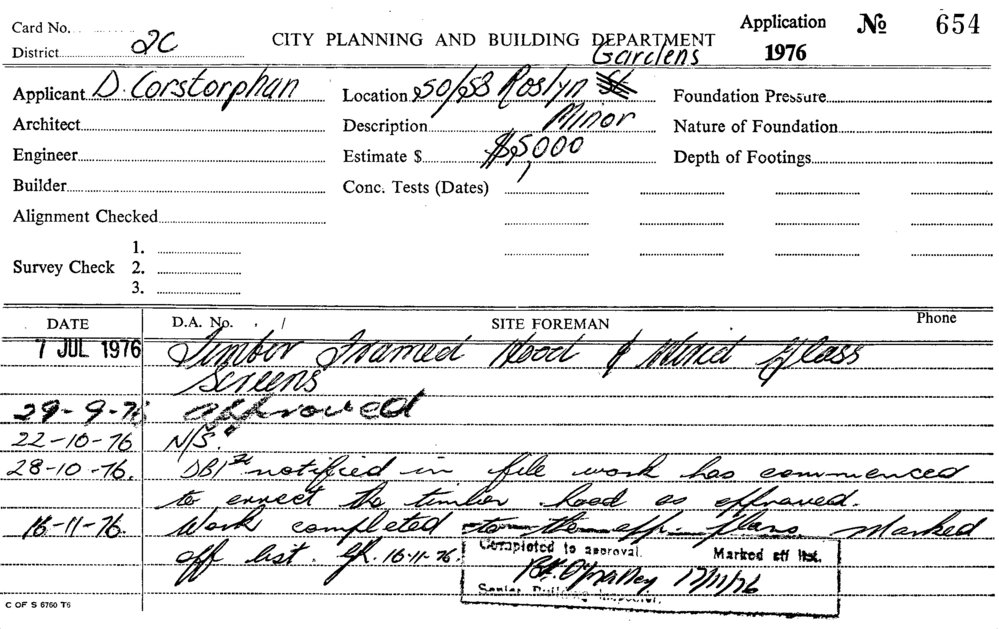 Card No.
District 2C
CITY PLANNING AND BUILDING DEPARTMENT
Application № 654
1976
Applicant D. Corstorphan
Location 50/58 Roslyn St Gardens
Foundation Pressure
Architect
Description Minor
Nature of Foundation
Engineer
Estimate $ $5,000
Depth of Footings
Builder
Conc. Tests (Dates)
Alignment Checked
1.
Survey Check 2.
3.
DATE D.A. No. SITE FOREMAN Phone
7 JUL 1976 Timber Framed Hood & Wired Glass
Screens
29-9-76 approved
22-10-76 N/S.
28-10-76. DBI notified in file work has commenced
to errect the timber hood as approved.
16-11-76. Work completed to the app. plans. Marked
off list. 16-11-76.
Completed to approval. Marked off list.
17/11/76
Senior Building Inspector.
C OF S 6760 T6